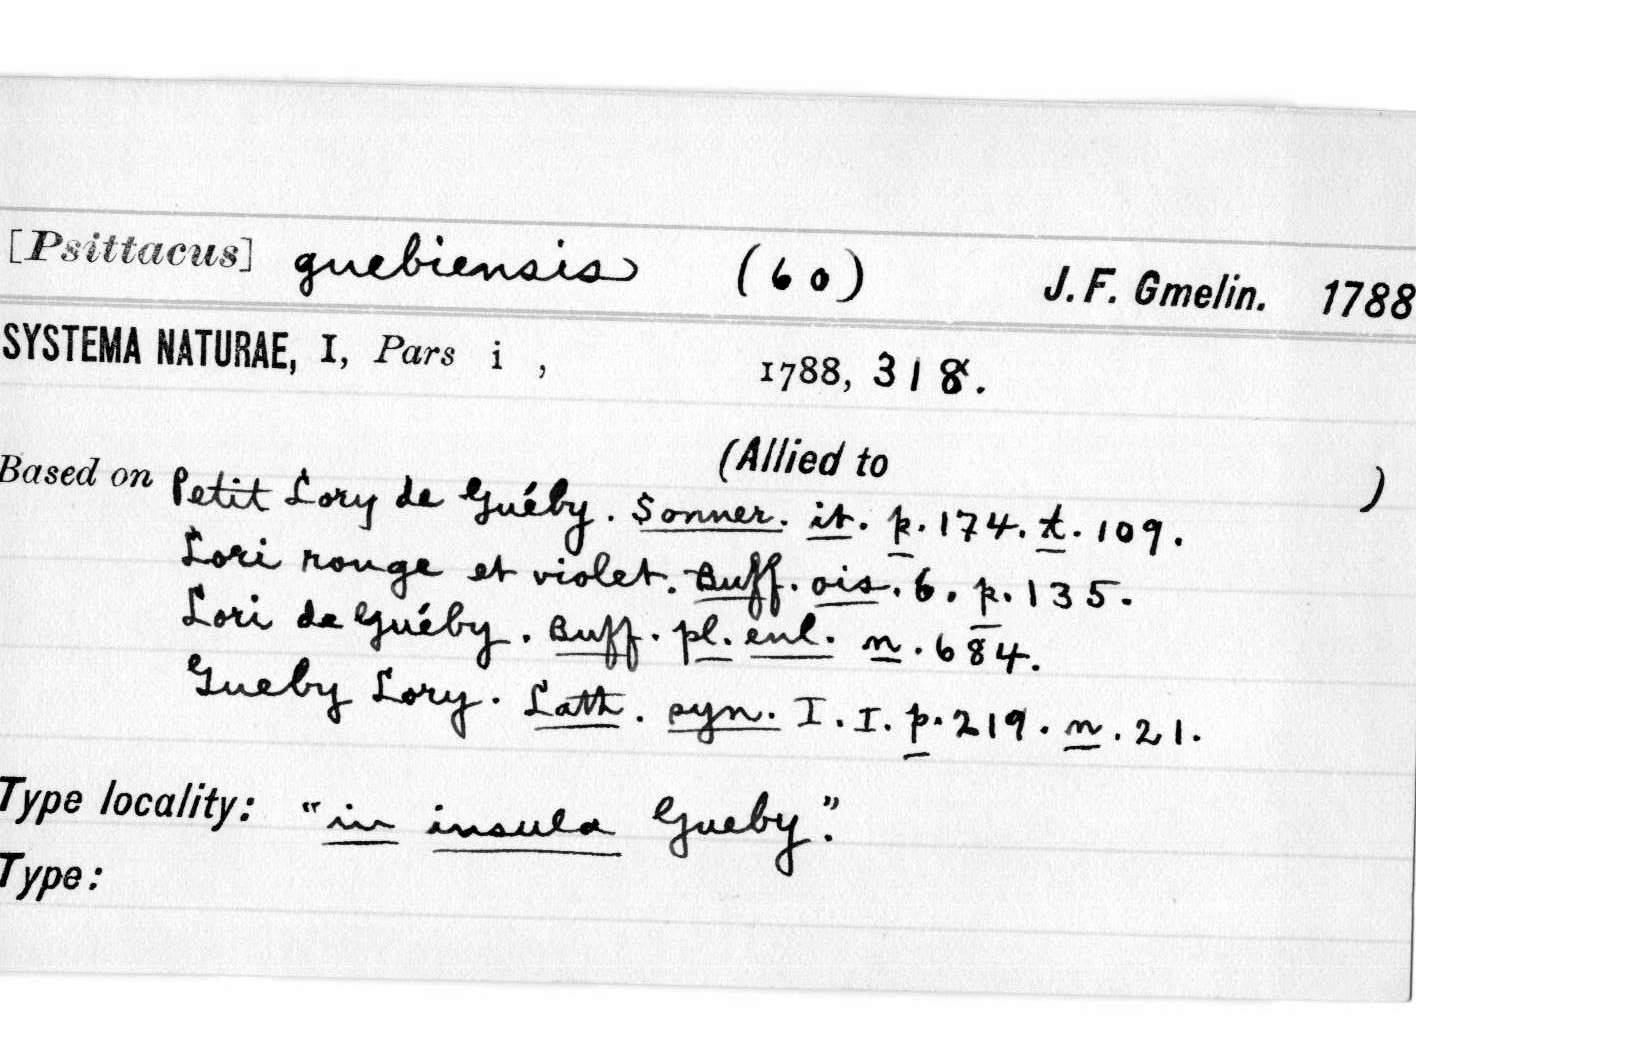 [Psittacus] guebiensis (60) J. F. Gmelin. 1788
SYSTEMA NATURAE, I, Pars i , 1788, 318.
(Allied to )
Based on Petit Lory de Guéby. Sonner. it. p. 174. t. 109.
Lori rouge et violet. Buff. ois. 6. p. 135.
Lori de Guéby. Buff. pl. enl. n. 684.
Gueby Lory. Lath. syn. I. I. p. 219. n. 21.
Type locality: "in insula Gueby".
Type: